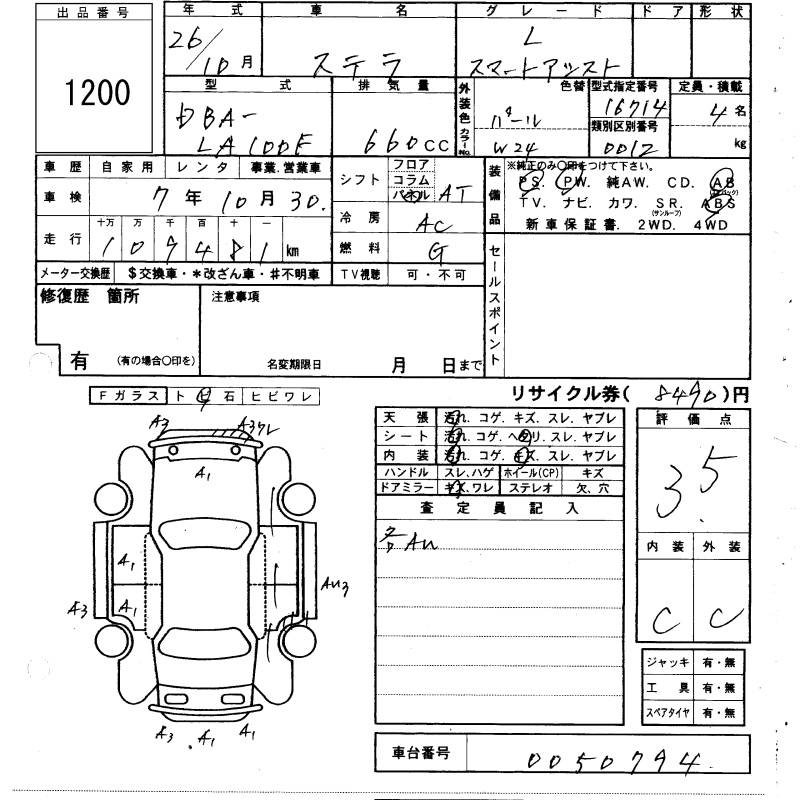 出品番号 年式 車名 グレード ドア 形状
1200
26/10月 ステラ L スマートアシスト
型式 排気量 外装色 カラーNo. 色替 型式指定番号 定員・積載
DBA-LA100F 660CC パール W24 16714 4名
類別区別番号 0012 kg
車歴 自家用 レンタ 事業.営業車
車検 7年10月30.
走行 十万 万 千 百 十 一
109481 km
メーター交換歴 $交換車・*改ざん車・#不明車
シフト フロア コラム パネル AT
冷房 AC
燃料 G
TV視聴 可・不可
装備品 ※純正のみ○印をつけて下さい。
PS. PW. 純AW. CD. AB
TV. ナビ. カワ. SR. ABS
(サンルーフ)
新車保証書. 2WD. 4WD
セールスポイント
修復歴 箇所 注意事項
有 (有の場合○印を) 名変期限日 月 日まで
リサイクル券( 8490)円
Fガラス ト ビ 石 ヒビワレ
A3 A3ワレ
A1
A1
A1
A3 AU3
A3 A1 A1
天張 汚れ. コゲ. キズ. スレ. ヤブレ
シート 汚れ. コゲ. ヘタリ. スレ. ヤブレ
内装 汚れ. コゲ. キズ. スレ. ヤブレ
ハンドル スレ.ハゲ ホイール(CP) キズ
ドアミラー キズ.ワレ ステレオ 欠.穴
査定員記入
各AU
評価点
3.5
内装 外装
C C
ジャッキ 有・無
工具 有・無
スペアタイヤ 有・無
車台番号 0050794.